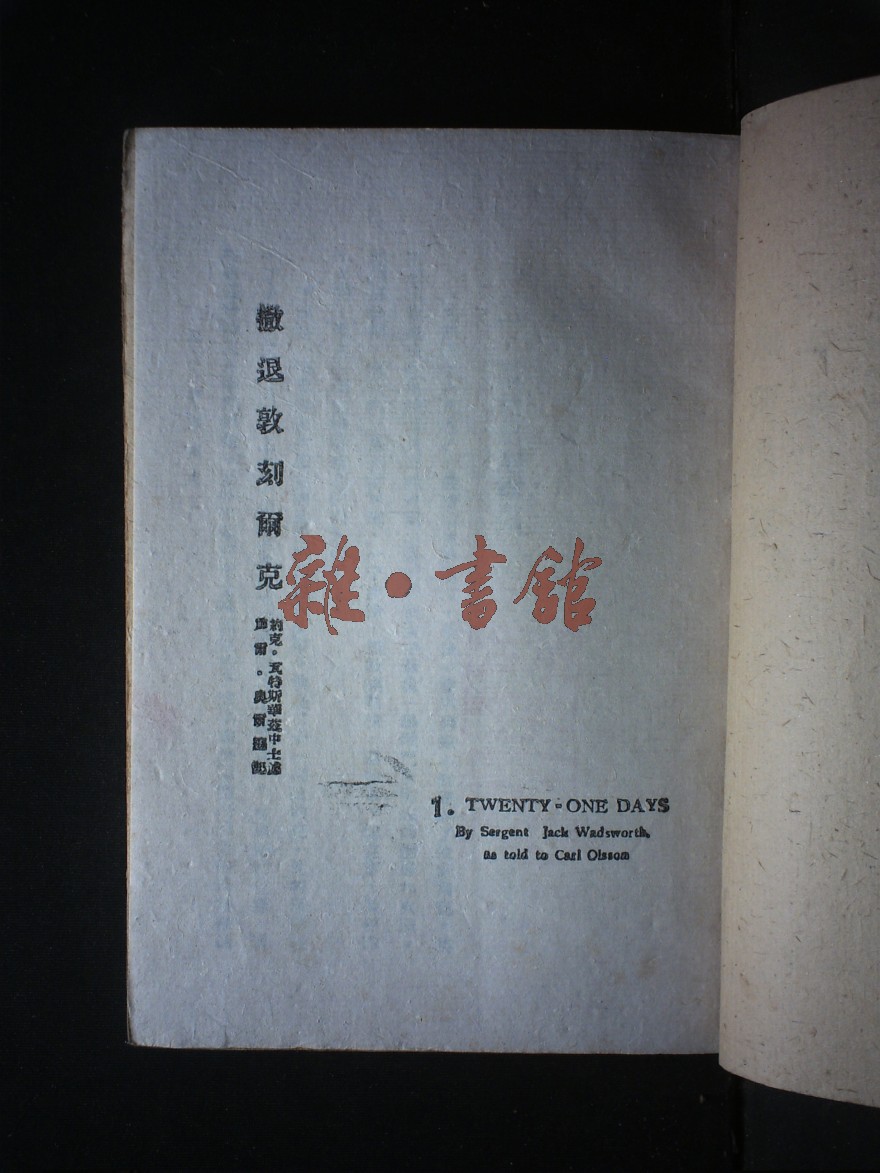 撤退敦刻爾克
約克。瓦特斯華茲中士述
爾。奧爾
雜·書館
1. TWENTY-ONE DAYS
By Sergent Jack Wadsworth,
as told to Carl Olssom